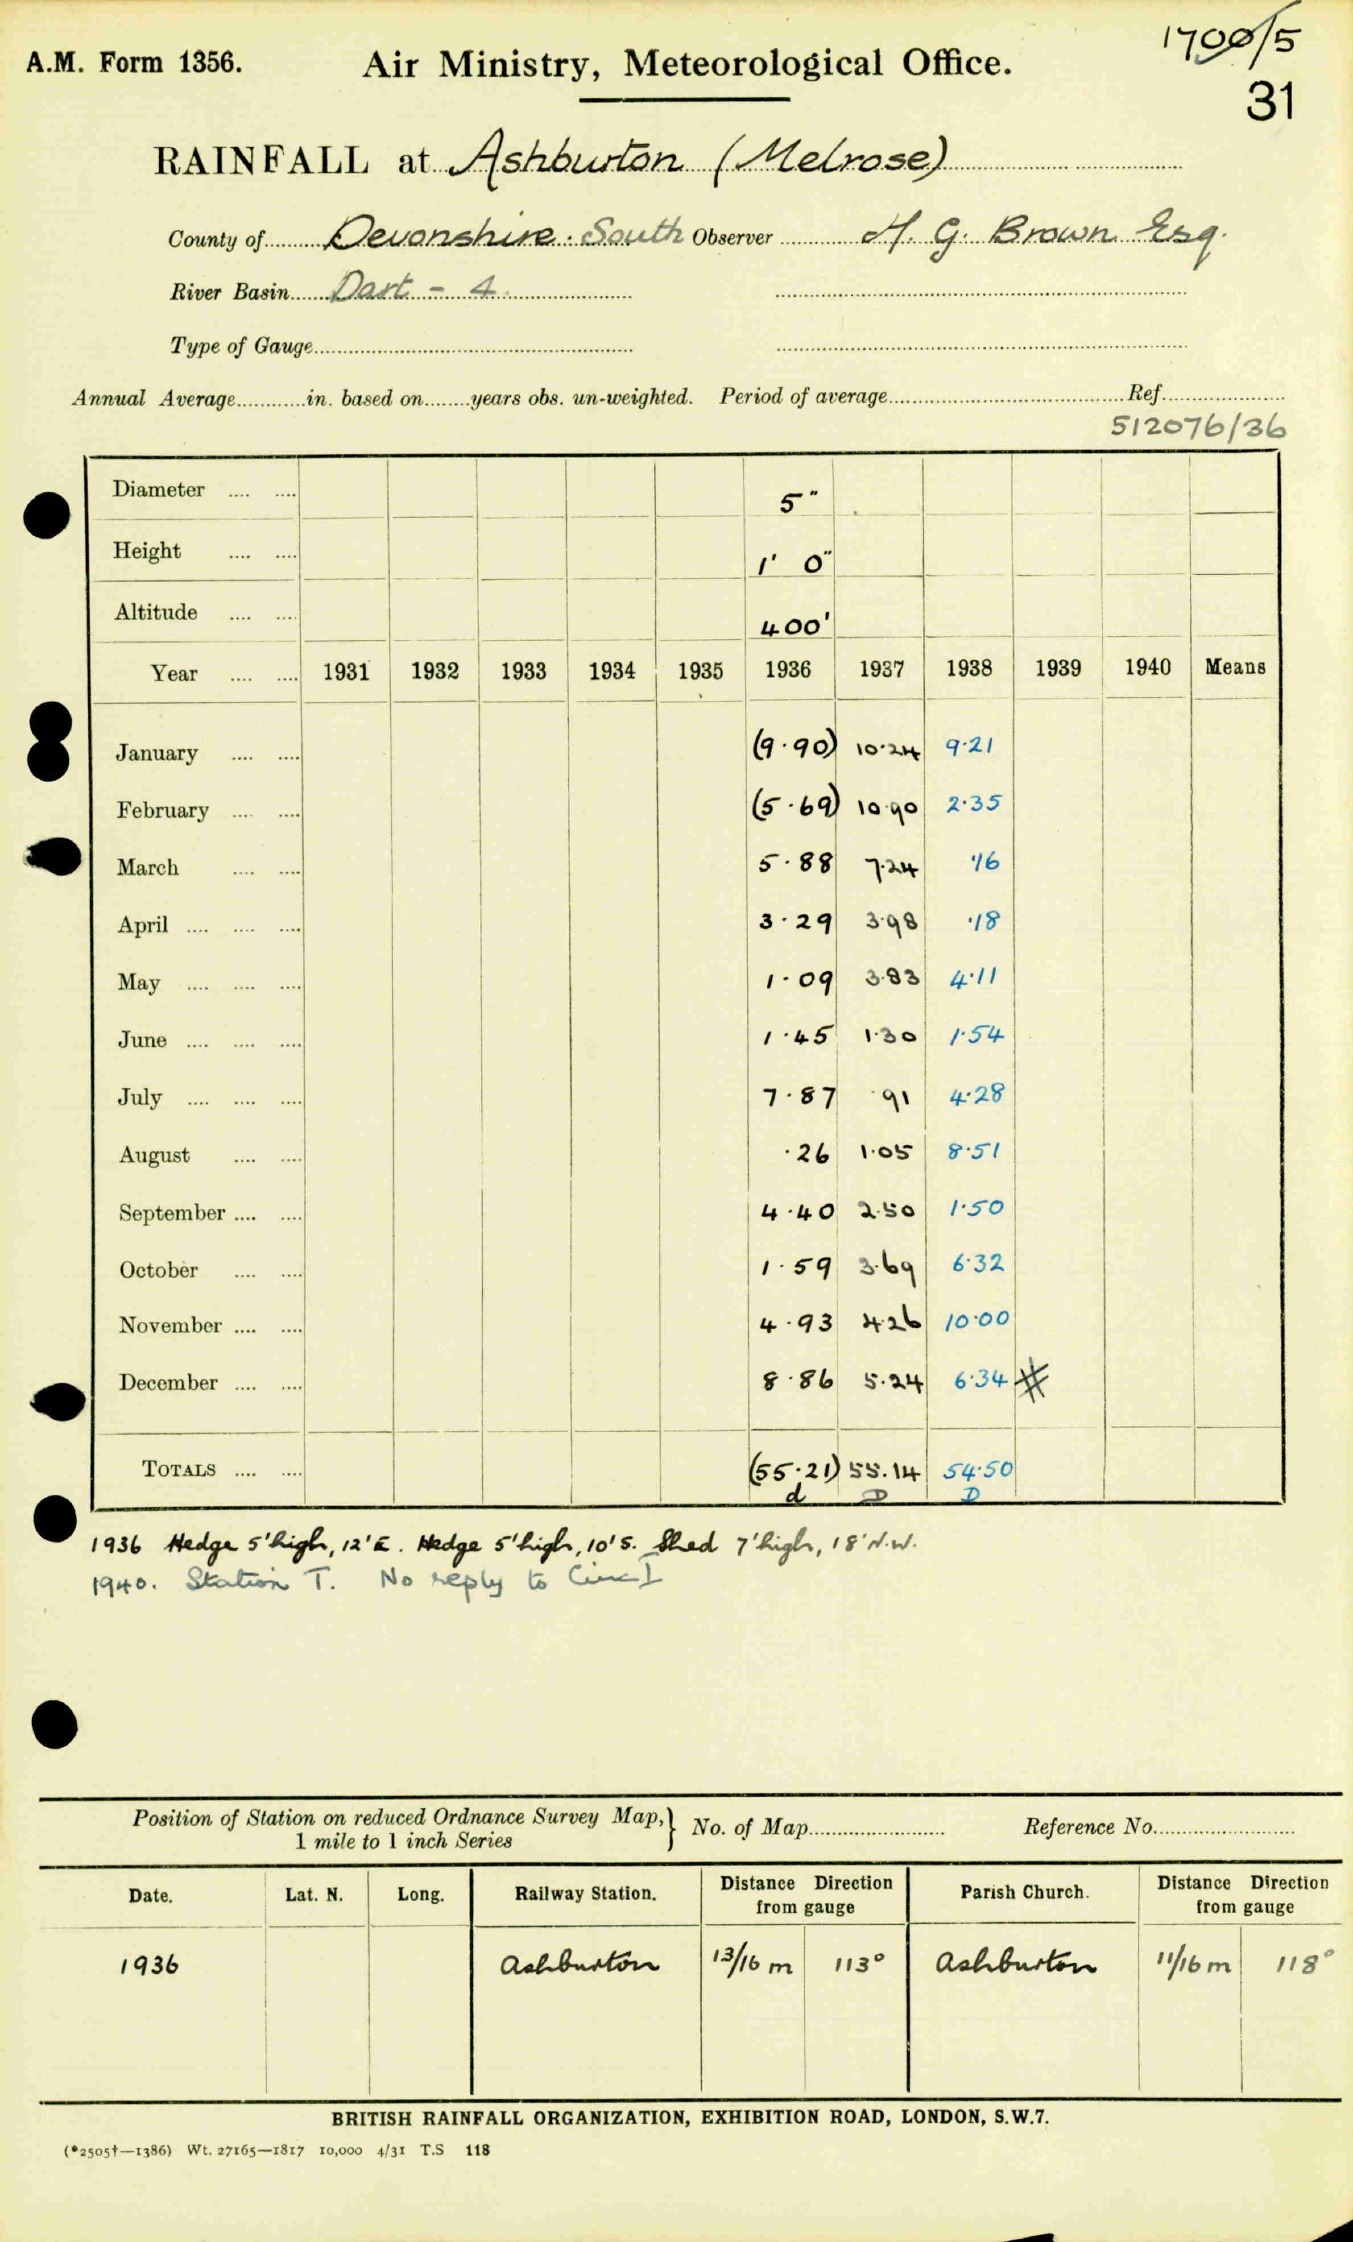 1700/5
A.M. Form 1356.
Air Ministry, Meteorological Office.
31
RAINFALL at Ashburton (Melrose)
County of Devonshire. South Observer H. G. Brown Esq.
River Basin Dart - 4.
Type of Gauge
Annual Average in. based on years obs. un-weighted. Period of average Ref.
512076/36
Diameter 5"
Height 1' 0"
Altitude 400'
Year 1931 1932 1933 1934 1935 1936 1937 1938 1939 1940 Means
January (9.90) 10.24 9.21
February (5.69) 10.90 2.35
March 5.88 7.24 .16
April 3.29 3.98 .18
May 1.09 3.83 4.11
June 1.45 1.30 1.54
July 7.87 .91 4.28
August .26 1.05 8.51
September 4.40 2.50 1.50
October 1.59 3.69 6.32
November 4.93 4.26 10.00
December 8.86 5.24 6.34
TOTALS (55.21) 55.14 54.50
d D D
1936 Hedge 5' high, 12' E. Hedge 5' high, 10' S. Shed 7' high, 18' N.W.
1940. Station T. No reply to Circ I
Position of Station on reduced Ordnance Survey Map,} No. of Map Reference No.
1 mile to 1 inch Series
Date. Lat. N. Long. Railway Station. Distance Direction from gauge Parish Church. Distance Direction from gauge
1936 Ashburton 13/16 m 113° Ashburton 11/16 m 118°
BRITISH RAINFALL ORGANIZATION, EXHIBITION ROAD, LONDON, S.W.7.
(*2505†—1386) Wt. 27165—1817 10,000 4/31 T.S 118